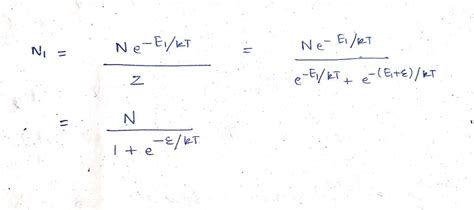 N₁ = N e^{-E₁/kT} / Z = N e^{-E₁/kT} / (e^{-E₁/kT} + e^{-(E₁+ε)/kT})
= N / (1 + e^{-ε/kT})